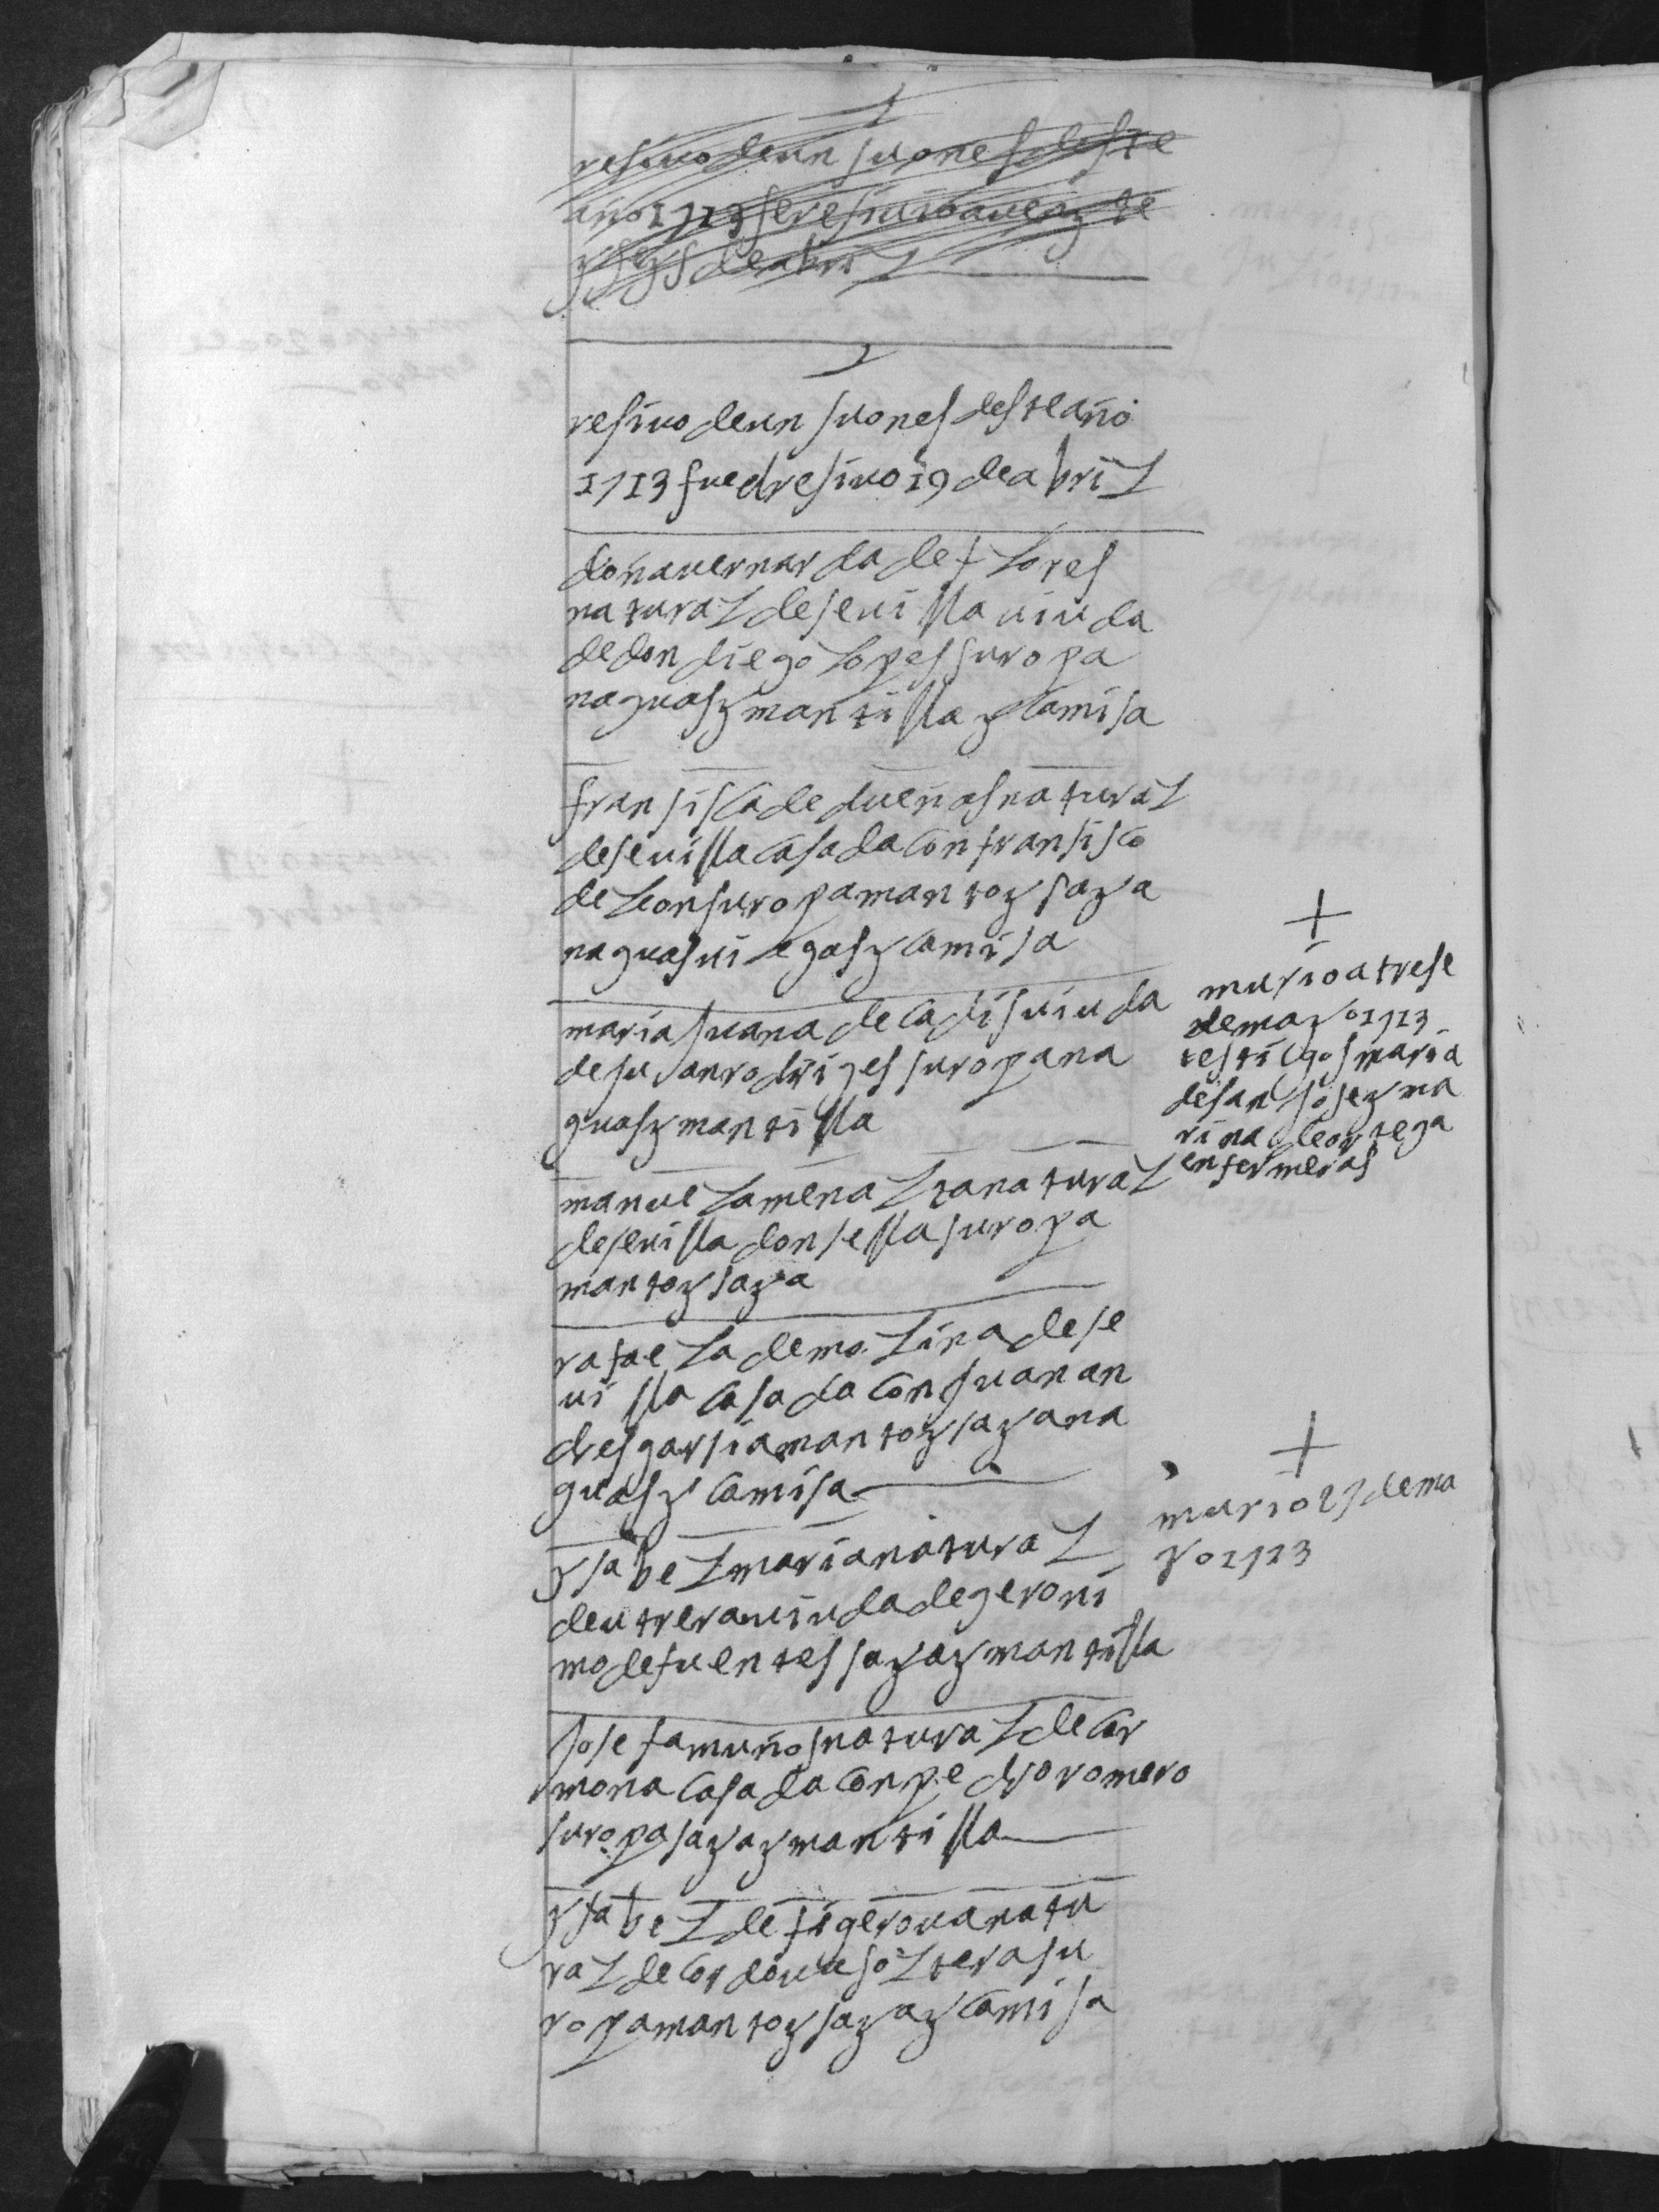 resiuo de un juones deste
año 1713 se resiuio a ueyte
y seys de abril
resiuo de un juones deste año
1713 fue el resiuo 19 de abril
doña uernarda de flores
natural de seuilla uiuda
de don diego lopes su ropa
naguas y mantilla y camisa
fransisca de dueñas natural
de seuilla casada con fransisco
de leon su ropa manto y saya
naguas ui egas y camisa
maria juana de cadis uiuda
de juan rodriges su ropa na
guas y mantilla
manuela menal ta natural
de seuilla donsella su ropa
manto y saya
rafaela de molina de se
uilla casada con juan an
dres garsia manto y saya na
guas y camisa
ysabel maria natural
de utrera uiuda de geroni
mo de fuentes saya y mantilla
josefa muños natural de car
mona casada con pedro romero
su ropa saya y mantilla
ysabel de figeroua natu
ral de cordoua soltera su
ropa manto y saya y camisa
+
murio a trese
de mayo 1713
testigos maria
de san jose y ma
rina de ortega
enfermeras
+
murio 27 de ma
yo 1713